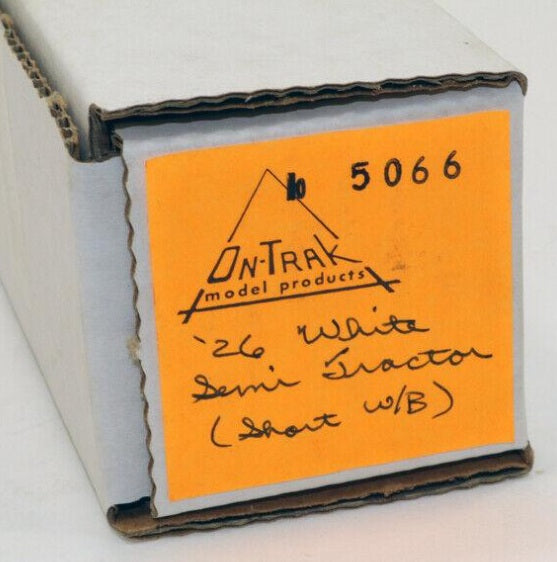 5066
ON-TRAK
model products
'26 White
Semi Tractor
(Short W/B)